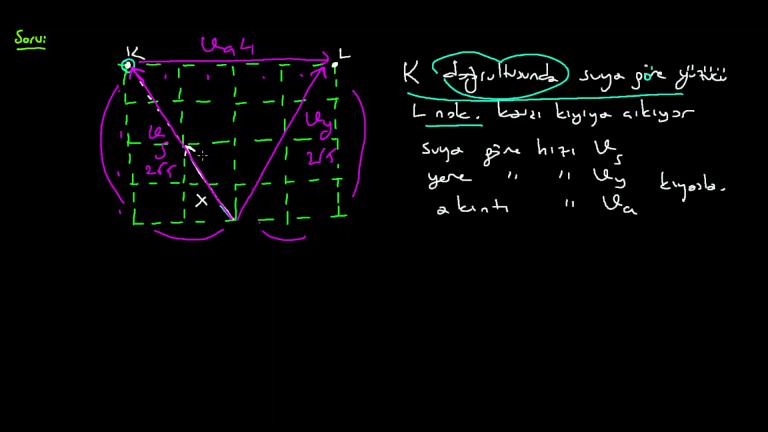 Soru:
K
L
Va 4
K doğrultusunda suya göre yüzücü
L nok. karşı kıyıya çıkıyor
Vs
2√5
Vy
2√5
suya göre hızı Vs
yere " " Vy
kıyasla.
x
akıntı " Va